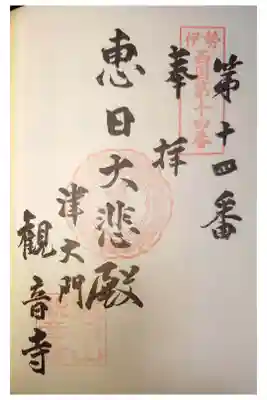 伊勢
西国第十四番
第十四番
奉拝
恵日大悲殿
津大門
観音寺